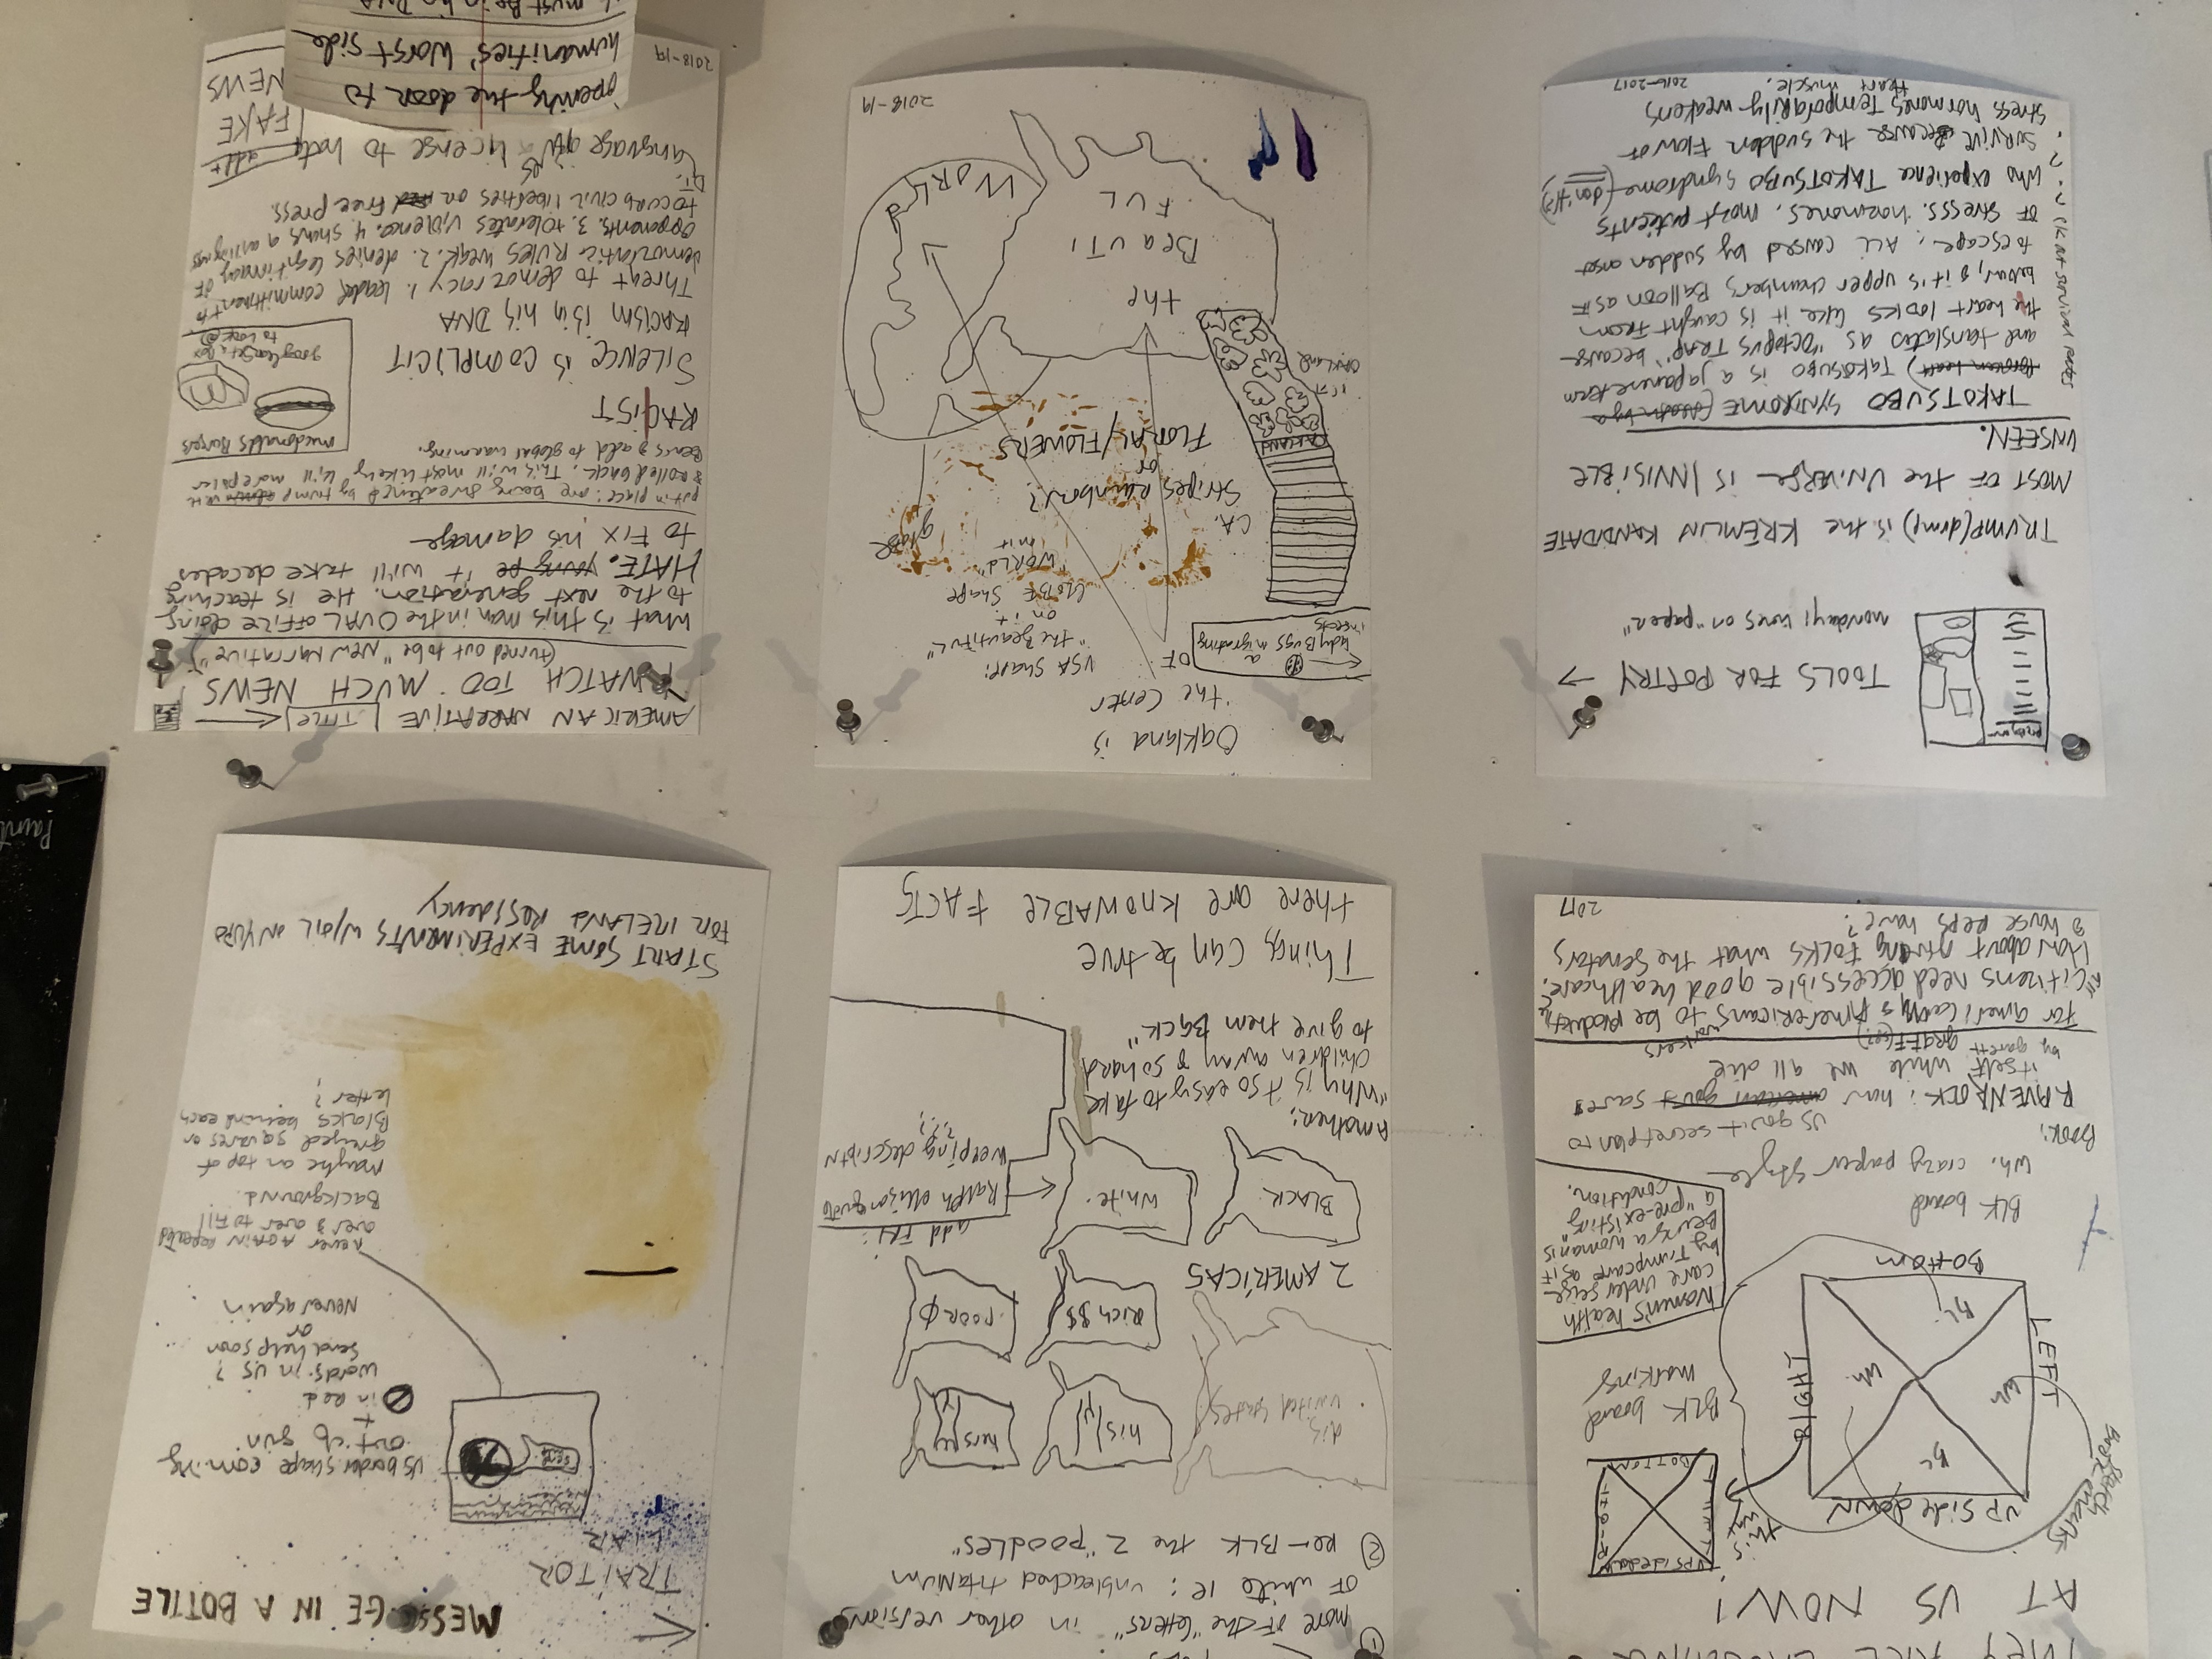 THEY ARE LAUGHING
AT US NOW!
UPSIDEDOWN
LEFT
RIGHT
BOTTOM
this
UPSIDE DOWN
LEFT
RIGHT
BOTTOM
BL
Wh
Wh
BL
BLK board
marking
BLK board
Wh. crazy paper style
Women's health
care under seige
by Trumpcare as if
Being a woman is
a "pre-existing"
condition.
BOOK:
US gov't secret plan to
RAVEN ROCK: how american gov't saves
itself while we all die
by garett graff
workers
For america & Americans to be productive
All citizens need accessible good healthcare.
How about giving FOLKS what the Senators
& house REPS have?
2017
① more of the "letters" in other versions
of white IE: unbleached titanium
② Re-BLK the 2 "poodles"
dis
united states
his
hers
Rich $$
POOR
2 AMERICAS
BLACK
White
add IN:
Ralph ellison quote
weeping description
???
A mother:
"Why is it so easy to take
children away & so hard
to give them BACK"
Things can be true
there are KNOWABLE FACTS
MESSAGE IN A BOTTLE
TRAITOR
LIAR
US border shape coming
out of gun
+
in red
words in US?
send help soon
or
Never again
never again repeated
over & over to fill
Background.
maybe on top of
greyed squares or
Blocks behind each
letter?
START SOME EXPERIMENTS W/OIL ON YUPO
FOR IRELAND RESIDENCY
Paint
TOOLS FOR POETRY →
monday: lines on "paper"
TRUMP(dump) is the KREMLIN KANDIDATE
MOST OF the UNIVERSE IS INVISIBLE
UNSEEN.
TAKOTSUBO SYNDROME
(Broken heart) TAKOSUBO is a japanese term
and translates as "OCTOPUS TRAP" because
the heart looks like it is caught from
below, & it's upper chambers Balloon as if
to escape. ALL caused by sudden onset
of stress hormones. most patients
who experience TAKOTSUBO syndrome (don't?)
survive Because the sudden flow of
stress hormones temporarily weakens
heart muscle.
2016-2017
Oakland is
the center
OF
Lady Bugs migrating
insects
USA Shape:
"the Beautiful"
on it
GLOBE Shape
"WORLD"
on it
globe
CA.
Stripes rainbow?
or
FLORAL/FLOWERS
OAKLAND
OAKLAND
is it
the
Beauti
FUL
WORLD
2018-19
AMERICAN NARRATIVE TITLE
I WATCH TOO MUCH NEWS
(turned out to be "NEW NARRATIVE")
What is this man in the OVAL OFFICE doing
to the next generation. He is teaching
HATE. it will take decades
to FIX his damage
put in place: are being threatened by trump
& rolled back. This will most likely kill more polar
Bears & add to global warming.
mcdonalds Burgers
google ariel fox
to look @
RACIST
SILENCE is COMPLICIT
RACISM is in his DNA
Threat to democracy 1. leader commitment to
democratic RULES weak. 2. denies legitimacy of
opponents. 3. tolerates violence. 4 shows a willingness
to curb civil liberties or free press.
DT:
language gives license to hate
add +
FAKE
NEWS
opening the door to
humanities' worst side
must Be in his DNA
2018-19